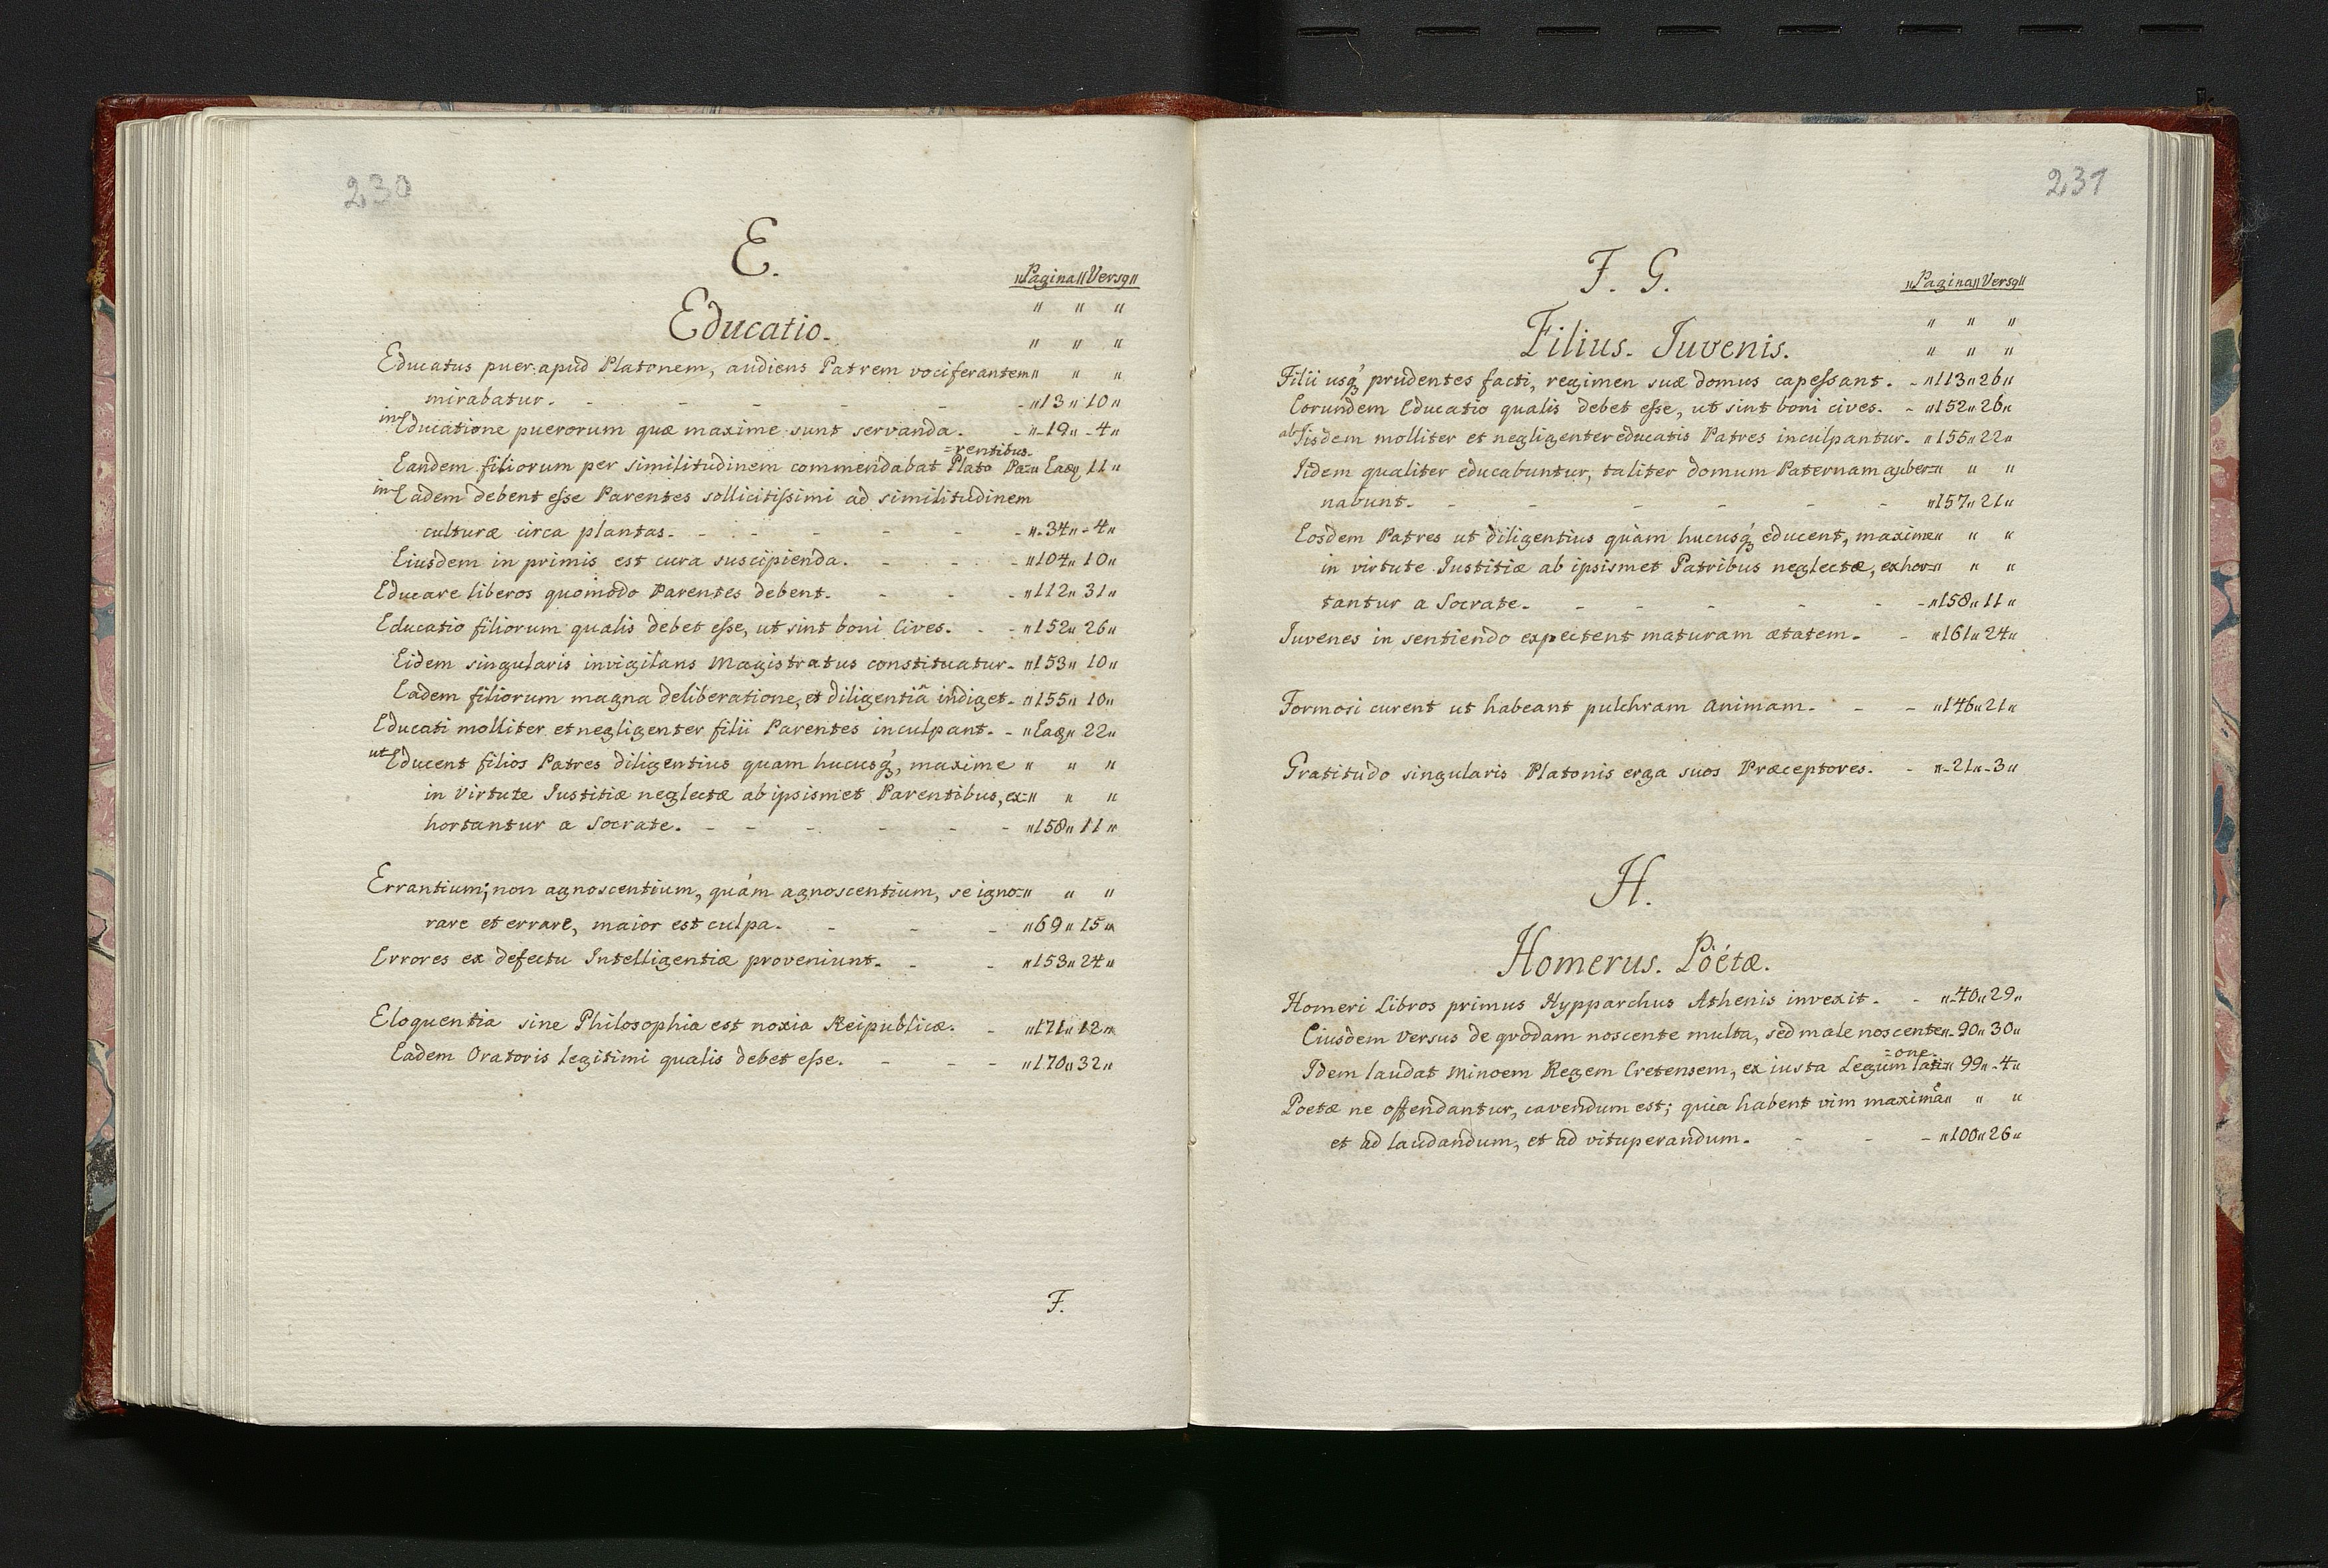 230
E.
„Pagina„Versꝯ„
„ „ „
Educatio.
„ „ „
Educatus puer apud Platonem, audiens Patrem vociferantem„ „ „
mirabatur. - - - - - -„13„10„
in Educatione puerorum quæ maxime sunt servanda. - „-19„-4„
=rentibus.
Eandem filiorum per similitudinem commendabat Plato Pa=„ Eaq 11„
in Eadem debent eße Parentes sollicitißimi ad similitudinem
culturæ circa plantas. - - - - - -„-34„-4„
Eiusdem in primis est cura suscipienda. - - - -„104„10„
Educare liberos quomodo Parentes debent. - - -„112„31„
Educatio filiorum qualis debet eße, ut sint boni Cives. - -„152„26„
Eidem singularis invigilans Magistratus constituatur.-„153„10„
Eadem filiorum magna deliberatione, et diligentiâ indiget.-„155„10„
Educati molliter et negligenter filii Parentes inculpant. -„Eaq„22„
ut Educent filios Patres diligentius quam hucusqꝫ, maxime „ „ „
in Virtute Iustitiæ neglectæ ab ipsismet Parentibus, ex=„ „ „
hortantur a Socrate. - - - - - -„158„11„
Errantium; non agnoscentium, quàm agnoscentium, se igno=„ „ „
rare et errare, maior est culpa. - - -„69„15„
Errores ex defectu Intelligentiæ proveniunt. - -„153„24„
Eloquentia sine Philosophia est noxia Reipublicæ. -„171„12„
Eadem Oratoris legitimi qualis debet eße. - - -„170„32„
F.
231
F. G.
„Pagina„Versꝯ„
„ „ „
Filius. Iuvenis.
„ „ „
Filii usqꝫ prudentes facti, regimen suæ domus capeßant. -„113„26„
Eorundem Educatio qualis debet eße, ut sint boni cives. -„152„26„
ab Iisdem molliter et negligenter educatis Patres inculpantur.-„155„22„
Idem qualiter educabuntur, taliter domum Paternam guber=„ „ „
nabunt. - - - - - - „157„21„
Eosdem Patres ut diligentius quàm hucusqꝫ educent, maxime„ „ „
in virtute Iustitiæ ab ipsismet Patribus neglectæ, exhor=„ „ „
tantur a Socrate. - - - - - -„158„11„
Iuvenes in sentiendo expectent maturam ætatem. - „161„24„
Formosi curent ut habeant pulchram Animam. - - „146„21„
Gratitudo singularis Platonis erga suos Præceptores. - „-21„-3„
H.
Homerus. Pöétæ.
Homeri Libros primus Hypparchus Athenis invexit. - „-40„29„
Eiusdem Versus de quodam noscente multa, sed male noscente„-90„30„
=one.
Idem laudat Minoem Regem Cretensem, ex iusta Legum lati=„ 99„-4„
Poetæ ne offendantur, cavendum est; quia habent vim maximã„ „ „
et ad laudandum, et ad vituperandum. - - -„100„26„